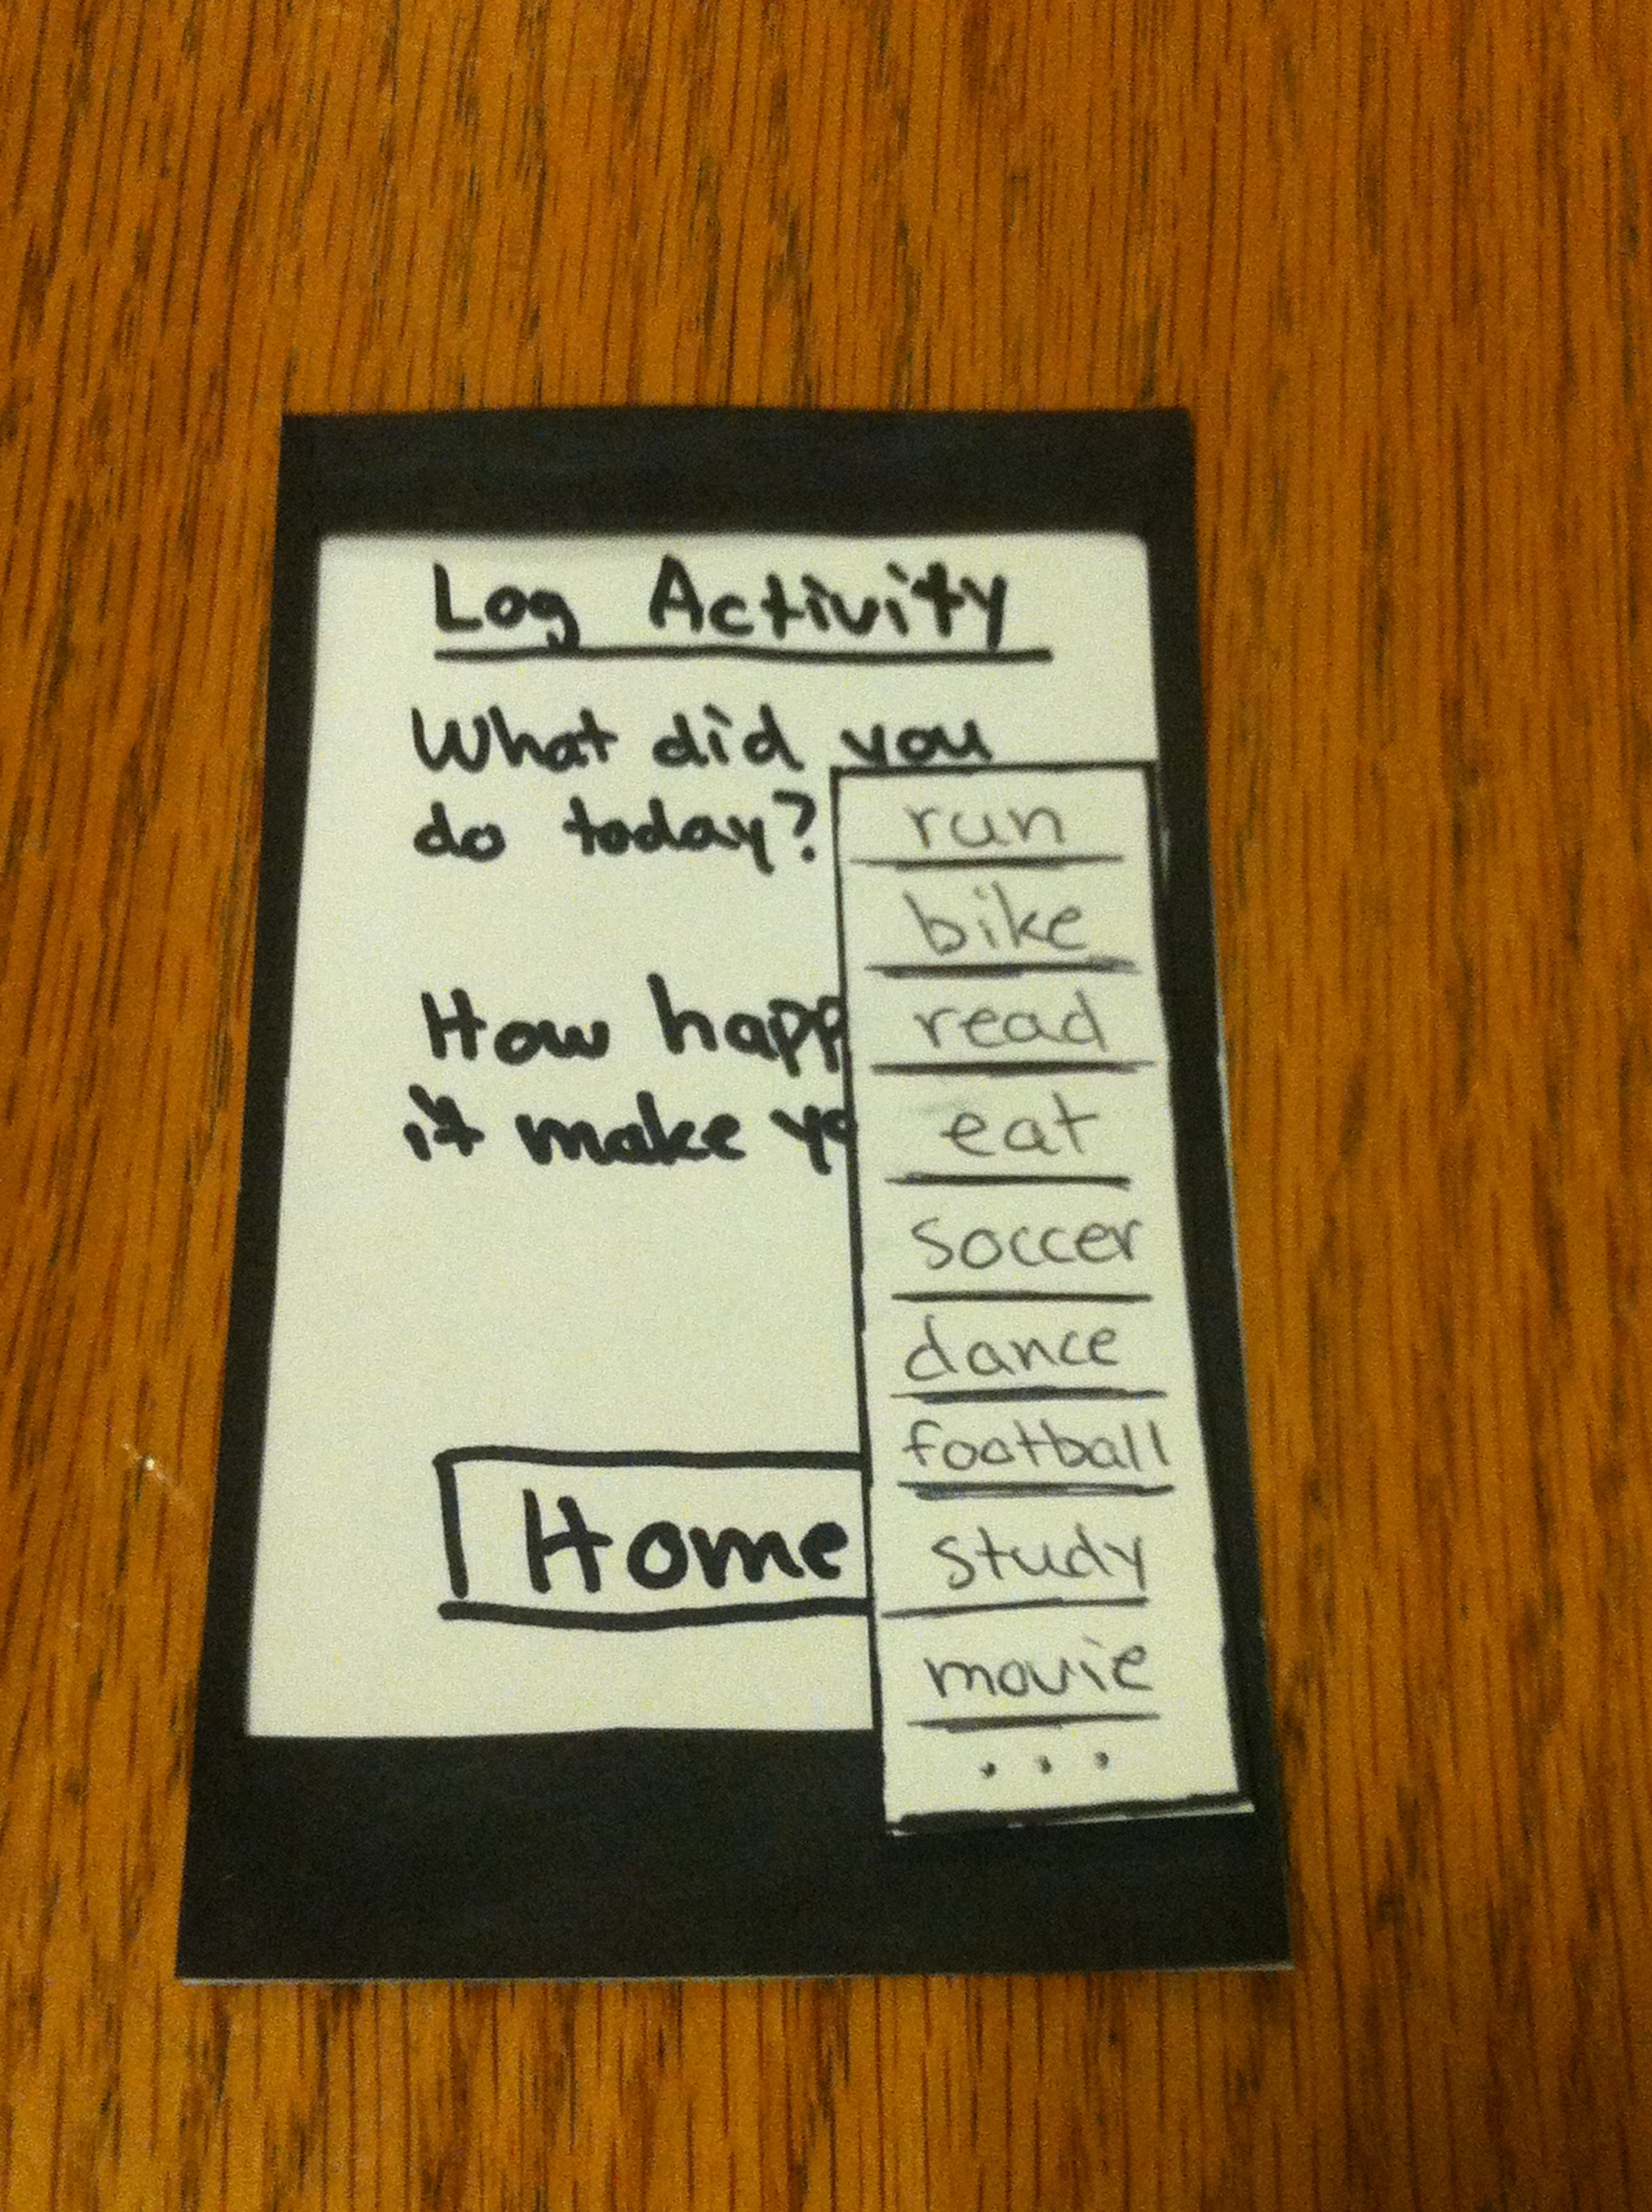 Log Activity
What did you
do today?
How happ
it make yo
Home
run
bike
read
eat
soccer
dance
football
study
movie
...